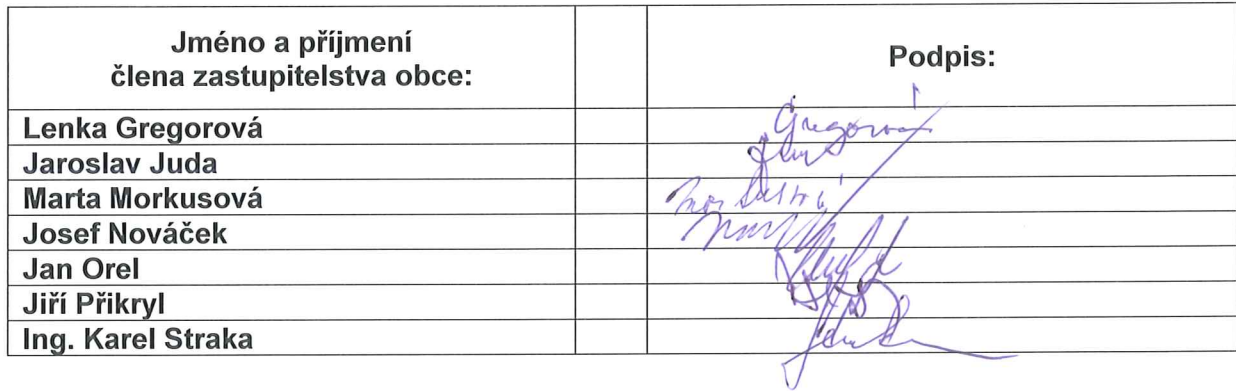 Jméno a příjmení
člena zastupitelstva obce:
Podpis:
Lenka Gregorová
Gregorová
Jaroslav Juda
Marta Morkusová
Josef Nováček
Jan Orel
Jiří Přikryl
Ing. Karel Straka